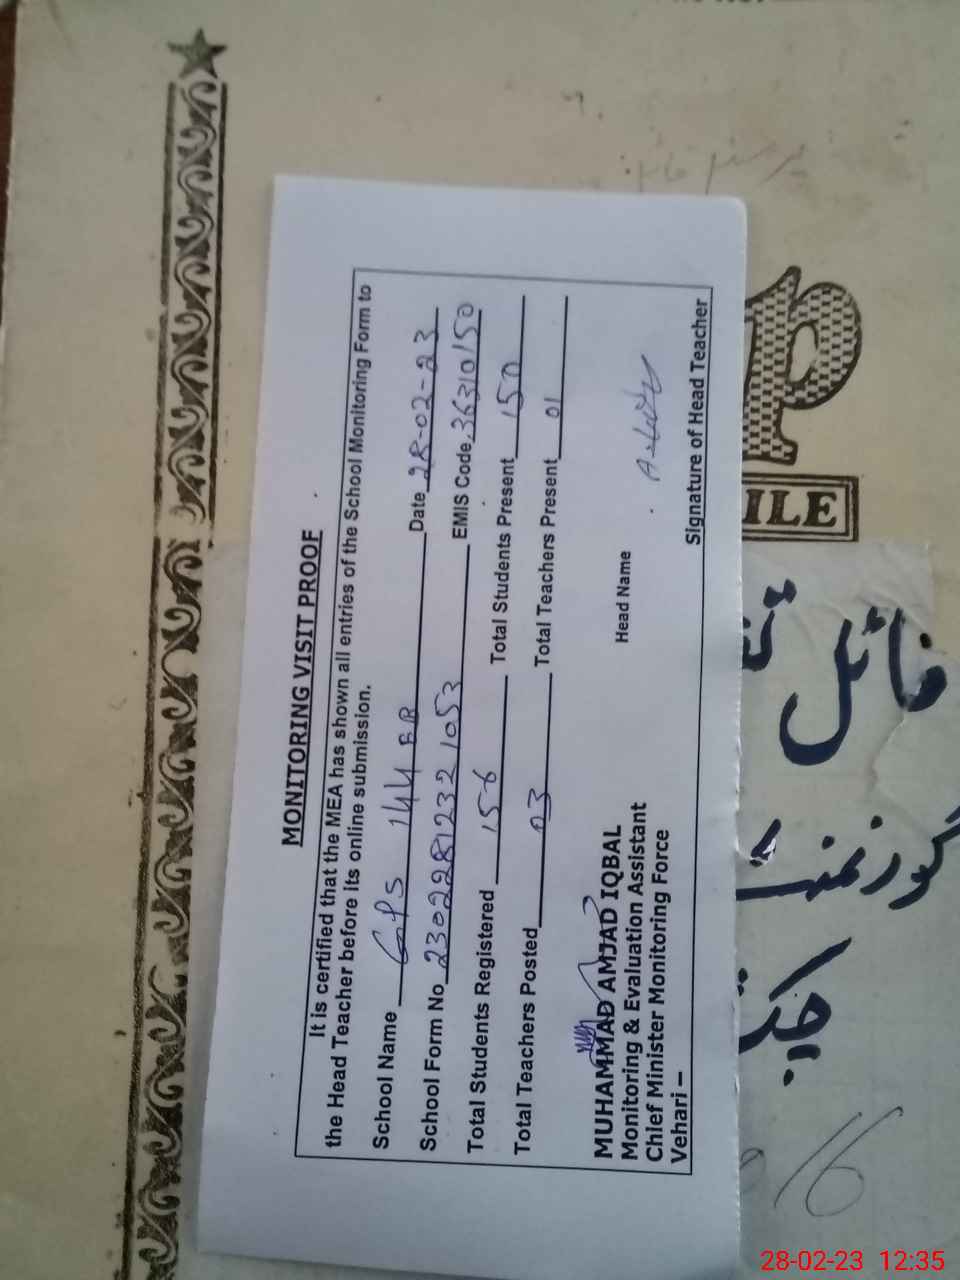 MONITORING VISIT PROOF
It is certified that the MEA has shown all entries of the School Monitoring Form to
the Head Teacher before its online submission.
School Name GPS 144 EB Date 28-02-23
School Form No 23022812321053 EMIS Code 36310150
Total Students Registered 156 Total Students Present 150
Total Teachers Posted 03 Total Teachers Present 01
MUHAMMAD AMJAD IQBAL
Monitoring & Evaluation Assistant
Chief Minister Monitoring Force
Vehari –
Head Name
Signature of Head Teacher
P
ILE
فائل
گورنمنٹ
28-02-23 12:35